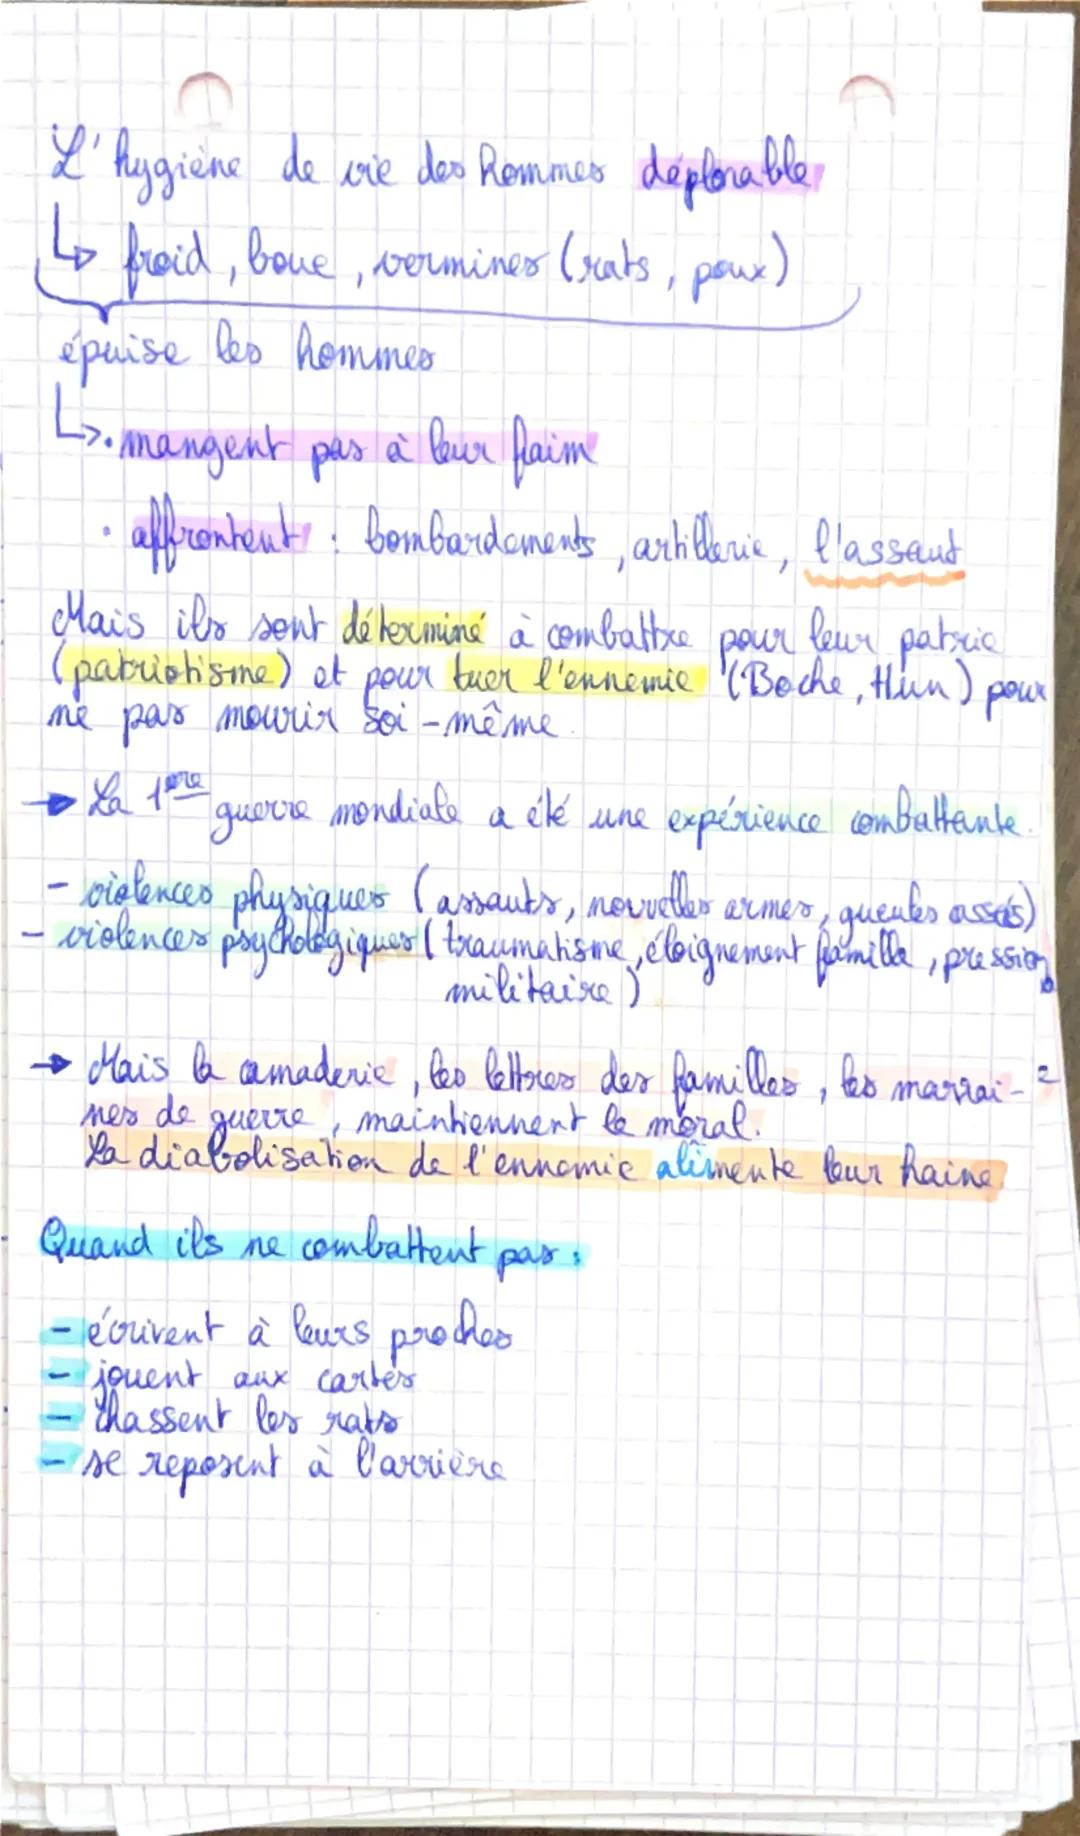 L'hygiène de vie des hommes déplorable
↳ froid, boue, vermines (rats, poux)
épuise les hommes
↳ • mangent pas à leur faim
• affrontent : bombardements, artillerie, l'assaut
Mais ils sont déterminé à combattre pour leur patrie
(patriotisme) et pour tuer l'ennemie (Boche, Hun) pour
ne pas mourir soi-même.
→ La 1ère guerre mondiale a été une expérience combattante.
- violences physiques (assauts, nouvelles armes, gueules assés)
- violences psychologiques (traumatisme, éloignement famille, pression
militaire)
→ Mais la camaderie, les lettres des familles, les marrai-
nes de guerre, maintiennent le moral.
La diabolisation de l'ennemie alimente leur haine.
Quand ils ne combattent pas :
- écrivent à leurs proches
- jouent aux cartes
- chassent les rats
- se reposent à l'arrière